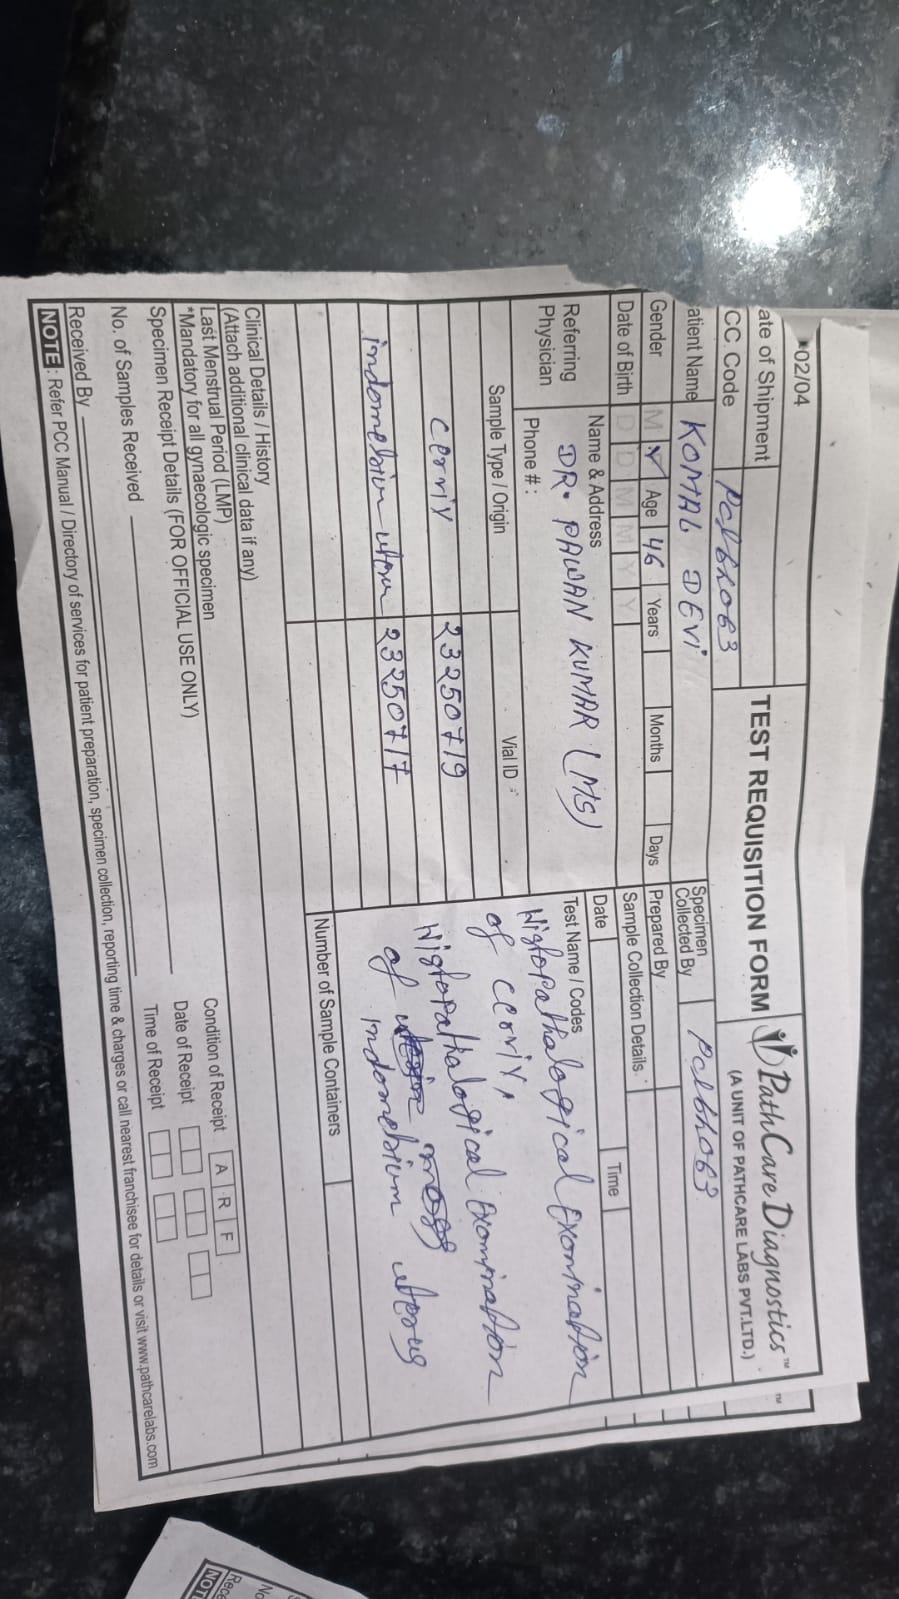 02/04
TEST REQUISITION FORM
PathCare Diagnostics™
(A UNIT OF PATHCARE LABS PVT.LTD.)
ate of Shipment
CC. Code
Specimen Collected By
atient Name KOMAL DEVI
Gender M Age 46 Years Months Days
Prepared By
Date of Birth D D M M Y Y
Sample Collection Details
Date Time
Referring Physician
Name & Address
DR. PAWAN KUMAR (MS)
Phone # :
Sample Type / Origin
Vial ID
Test Name / Codes
Histopathalogical Exomination
of cerviy
cerviy 23250719
Histopathalogical Exomination
of indomebium uterus
indomebium 23250717
Number of Sample Containers
Clinical Details / History
(Attach additional clinical data if any)
Last Menstrual Period (LMP)
*Mandatory for all gynaecologic specimen
Specimen Receipt Details (FOR OFFICIAL USE ONLY)
Condition of Receipt A R F
No. of Samples Received
Date of Receipt
Received By
Time of Receipt
NOTE : Refer PCC Manual / Directory of services for patient preparation, specimen collection, reporting time & charges or call nearest franchisee for details or visit www.pathcarelabs.com
No
Rece
NOT